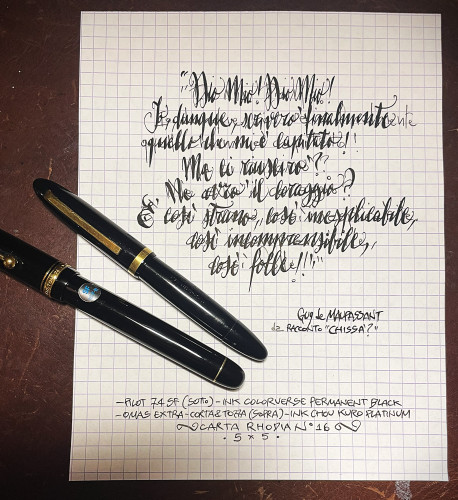 "Dio Mio! Dio Mio!
Io, dunque, scriverò finalmente
quello che mi è capitato!
Ma ci riuscirò?
Ne avrò il coraggio?
È così strano, così inesplicabile,
così incomprensibile,
così folle!"
Guy de MAUPASSANT
da RACCONTO "CHISSÀ?"
-PILOT 74 SF (SOTTO)-INK COLORVERSE PERMANENT BLACK
-OMAS EXTRA-CORTA E TOZZA (SOPRA)-INK CHOU KURO PLATINUM
CARTA RHODIA N° 16
• 5 x 5 •